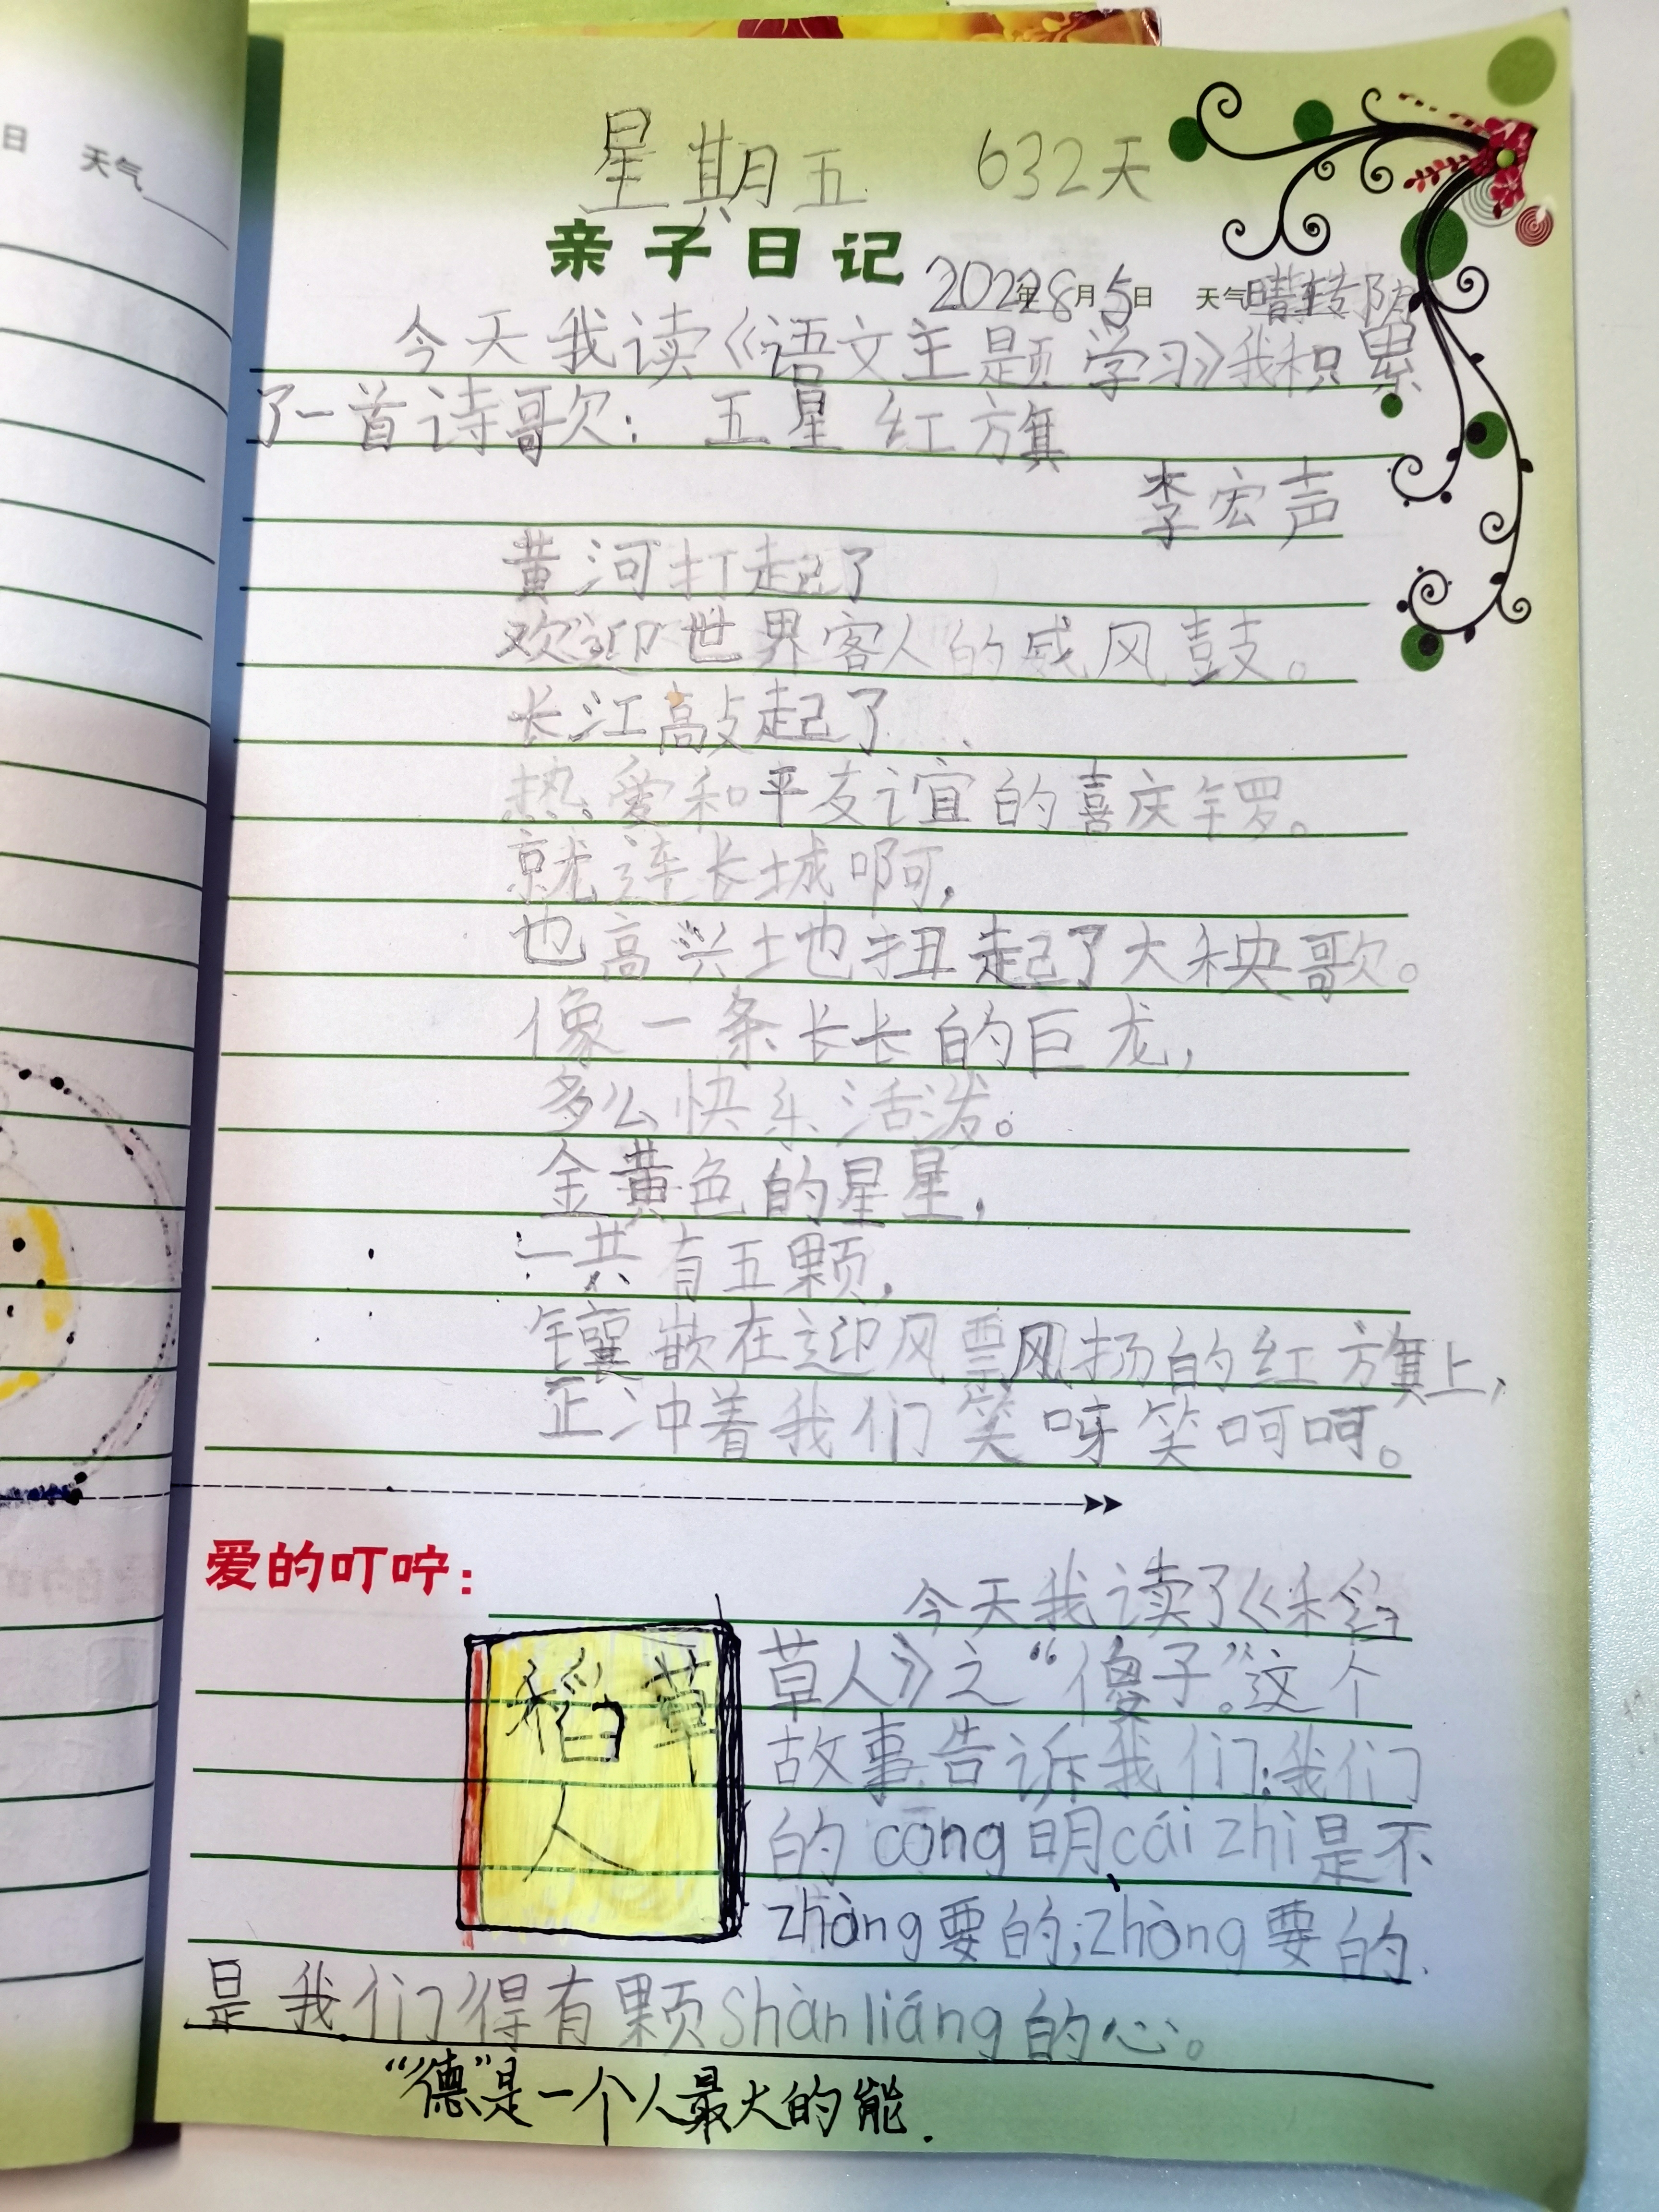 日 天气
星期五 632天
亲子日记 2022年8月5日 天气晴转阴
今天我读《语文主题学习》我积累
了一首诗歌：五星红旗
李宏声
黄河打起了
欢迎世界客人的威风鼓。
长江敲起了
热爱和平友谊的喜庆锣。
就连长城啊，
也高兴土地扭起了大秧歌。
像一条长长的巨龙，
多么快乐活泼。
金黄色的星星，
一共有五颗，
镶嵌在迎风飘扬的红旗上，
正冲着我们笑呀笑呵呵。
爱的叮咛：
今天我读了《稻
草人》之“傻子”。这个
故事告诉我们：我们
的cōng明cái zhì是不
zhòng要的；zhòng要的
是我们得有颗shàn liáng的心。
稻草
人
“德”是一个人最大的能.